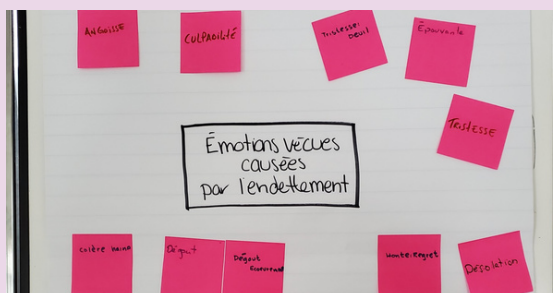 ANGOISSE
CULPABILITÉ
Tristesse:
Deuil
Épouvante
TRISTESSE
Émotions vécues
causées
par l'endettement
Colère haine
Dégout
Dégout
Honte:Regret
Désolation